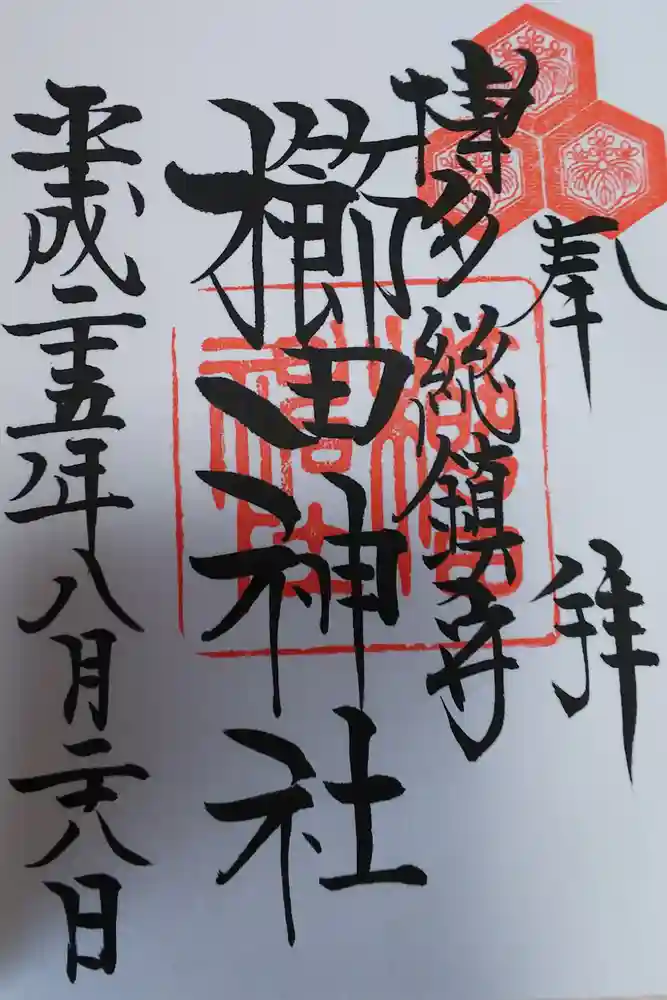 奉拝
博多総鎮守
櫛田神社
平成二十五年八月二十八日